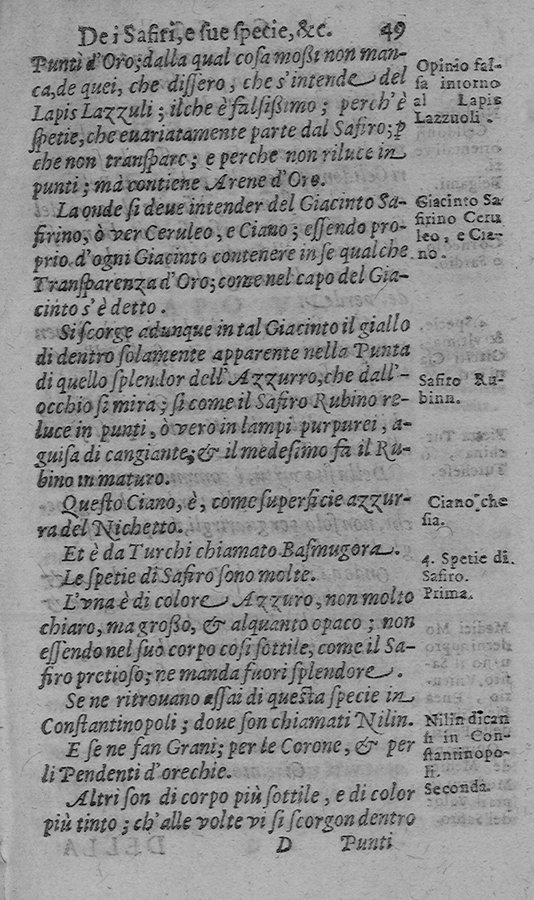 De i Safiri, e sue specie, &c. 49
Punti d'Oro; dalla qual cosa moßi non man-
ca, de quei, che dissero, che s'intende del
Lapis Lazzuli; ilche è falsißimo; perch'è
spetie, che euariatamente parte dal Safiro; p
che non transparc; e perche non riluce in
punti; mà contiene Arene d'Oro.
La onde si deue intender del Giacinto Sa-
firino, ò ver Ceruleo, e Ciano; essendo pro-
prio d'ogni Giacinto contenere in se qualche
Transparenza d'Oro; come nel capo del Gia-
cinto s'è detto.
Si scorge adunque in tal Giacinto il giallo
di dentro solamente apparente nella Punta
di quello splendor dell'Azzurro, che dall'-
occhio si mira; si come il Safiro Rubino re-
luce in punti, ò vero in lampi purpurei, a-
guisa di cangiante; & il medesimo fa il Ru-
bino in maturo.
Questo Ciano, è, come superficie azzur-
ra del Nichetto.
Et è da Turchi chiamato Basmugora.
Le spetie di Safiro sono molte.
L'vna è di colore Azzuro, non molto
chiaro, ma großo, & alquanto opaco; non
essendo nel suò corpo cosi sottile, come il Sa-
firo pretioso; ne manda fuori splendore.
Se ne ritrouano assai di questa specie in
Constantinopoli; doue son chiamati Nilin.
E se ne fan Grani; per le Corone, & per
li Pendenti d'orechie.
Altri son di corpo più sottile, e di color
più tinto; ch'alle volte vi si scorgon dentro
D Punti
Opinio fal-
sa intorno
al Lapis
Lazzuoli.
Giacinto Sa
firino Ceru
leo, e Cia-
no.
Safiro Ru-
binn.
Ciano che
sia.
4. Spetie di
Safiro.
Prima.
Nilin dican
si in Con-
stantinopo-
li.
Seconda.